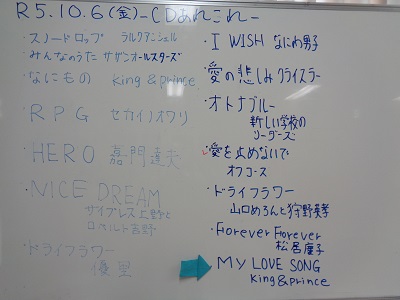 R5.10.6(金)-CDあれこれー
・スノードロップ ラルクアンシェル
・みんなのうた サザンオールスターズ
・なにもの King & Prince
・RPG セカイノオワリ
・HERO 嘉門達夫
・NICE DREAM
サイプレス上野と
ロベルト吉野
・ドライフラワー
優里
・I WISH なにわ男子
・愛の悲しみ クライスラー
・オトナブルー
新しい学校の
リーダーズ
・愛を止めないで
オフコース
・ドライフラワー
山口めろんと狩野英孝
・Forever Forever
松居慶子
・MY LOVE SONG
King & prince